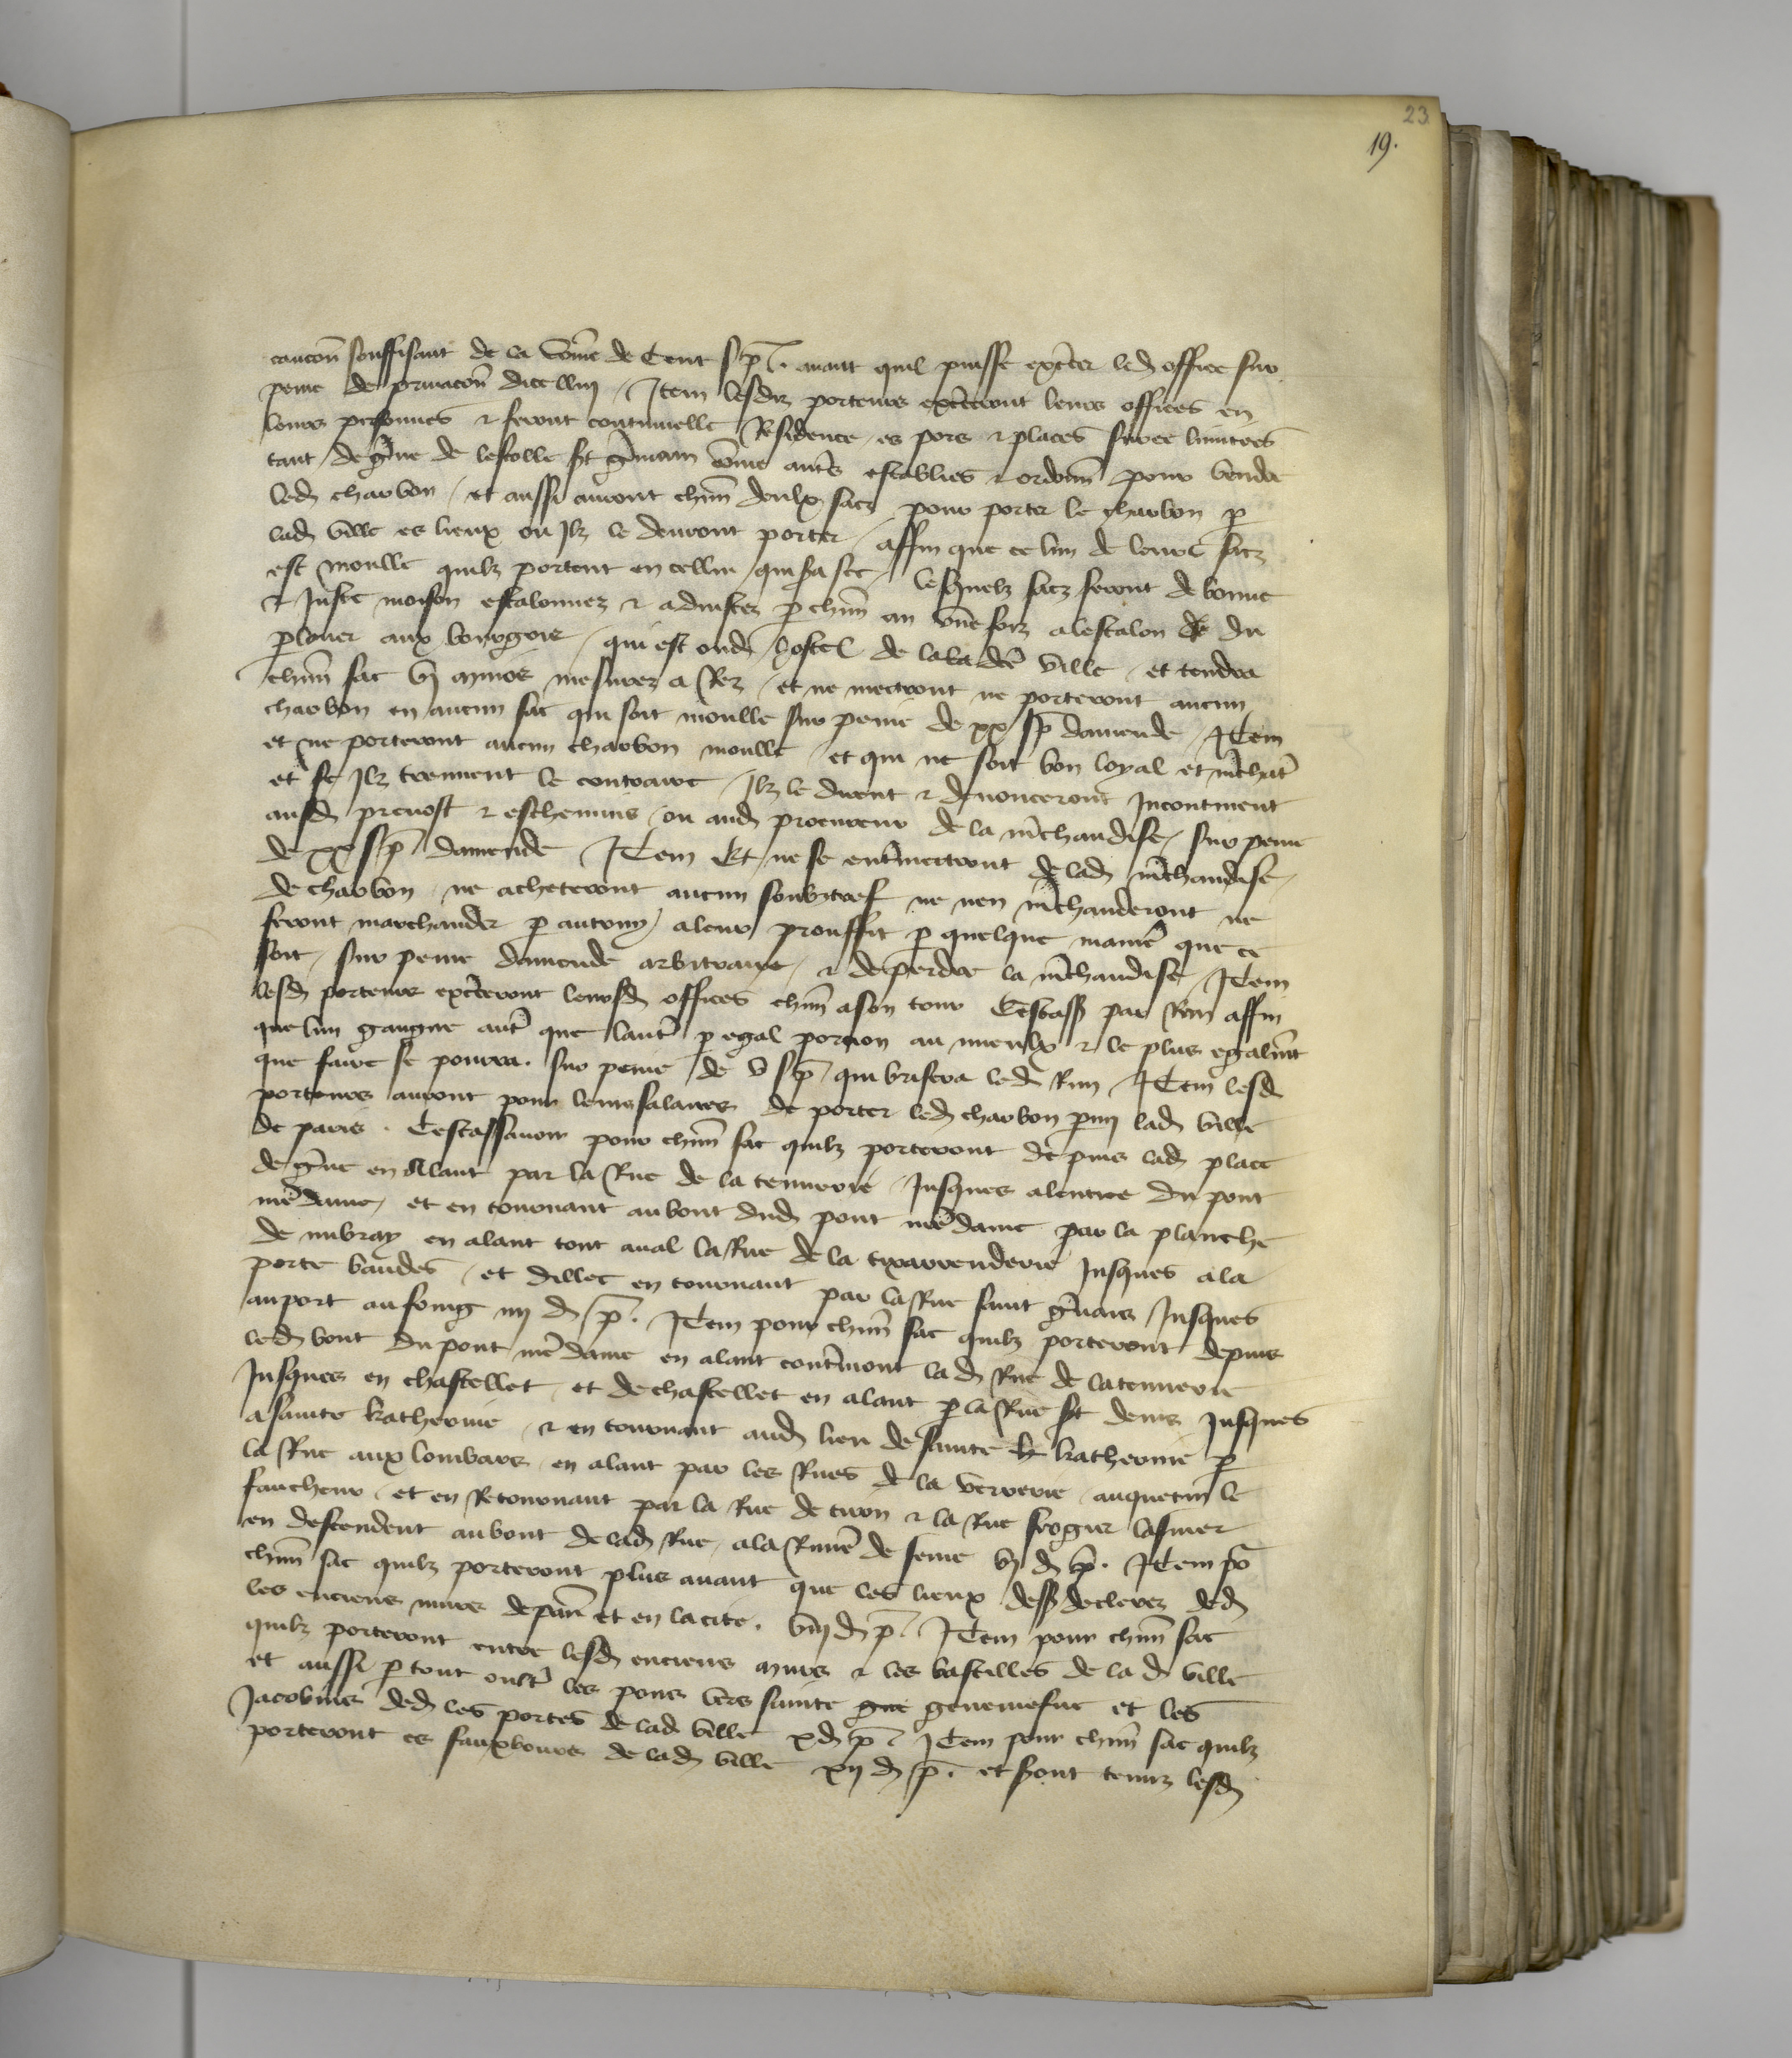 23
19.
caucon̄ souffisant de la som̄e de Cent s p̄. auant quil puisse exc̄er led office sur
peine de priuacon̄ dicelluy / Item lesdiz porteurs exc̄eront leurs offices en
leurs personnes & feront continuelle Residence es pors & places
tant de gr̄ue de lescolle st gr̄main com̄e autr̄s establies & ordonn̄ pour vendre
led charbon / et aussi auront chūn deulx sacz pour porter le charbon p
lad ville es lieux ou Ilz le deuront porter / affin que se lun de leurs sacz
est moulle quilz portent en celluy qui sera sec / lesquelz sacz seront de bonne
& Juste moison estalonnez & adiustez p chūn an vne foiz alestalon de du
plouer aux bourgois / qui est oud hostel de la la dc̄e ville / et tendra
chūn sac vj minos mesurez a Rez / et ne mectront ne porteront aucun
charbon en aucun sac qui soit moulle sur peine de xx s p̄ damende / Item
et ne porteront aucun charbon moulle et qui ne soit bon loyal et mc̄hāt
et se Ilz treuuent le contraire / Ilz le diront & denonceront Incontinent
ausd preuost & escheuins / ou aud procureur de la mc̄handise / sur peine
de xx s p̄ damende Item Et ne se entrem̄ectront de lad mc̄handise
de charbon / ne acheteront aucun ne nen mc̄handeront ne
feront marchander p autruy / aleur prouffit p quelque manie᷑ que ce
soit / sur peine damende arbitraire / & de perdre la mc̄handise / Item
lesd porteurs exc̄eront leursd offices chūn ason tour Cestass par Run affin
que lun gaigne aut̄ que laut̄ p egal porcion au mieulx & le plus egalm̄t
que faire se pourra. sur peine de v s p̄ / qui brisera led Run Item lesd
porteurs auront pour leurs salaires de porter led charbon pmy lad ville
de paris. Cestassauoir pour chūn sac quilz porteront depuis lad place
de gr̄ue en Alant par la Rue de la tennerie / Jusques alentree du pont
nr̄e dame / et en tournant aubout dud pont nr̄e dame par la planche
de mibray en alant tout aual la Rue de la tixarrenderie Jusques ala
porte baudes / et dillec en tournant par la Rue saint gr̄uais / Jusques
auport au foing iiij d p̄. Item pour chūn sac quilz porteront depuis
led bout du pont nr̄e dame en alant contrem̄ont lad Rue de la tennerie
Jusques en chastellet / et de chastellet en alant p la Rue st denis Jusques
a sainte katherine / & en tournant aud lieu de sainte k katherine p
la Rue aux lombars en alant par les Rues de la verrerie / auquetin le
faucheur / et en Retournant par la Rue de tiron & la Rue frogier lasnier
en descendent aubout de lad Rue / ala Riuie᷑ de seine vj d p̄. Item po᷑
chūn sac quilz porteront plus auant que les lieux dess declerez ded
les enciens murs de paris et en la cite. viij d p̄. Item pour chūn sac
quilz porteront entre lesd enciens murs & les bastilles de lad ville
et aussi p tout oult̄ les pons vers sainte gne geneuiefue et les
Jacobins ded les portes de lad ville x d p̄. Item pour chūn sac quilz
porteront es fauxbours de lad ville xij d p̄. et seront tenuz lesd